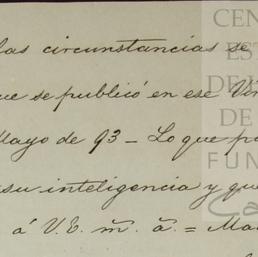 las circunstancias se
ue se publicó en ese
Mayo de 93 — Lo que
su inteligencia y qu
á V.E. m. a. = Ma
CEN
EST
DE
DE
FUN